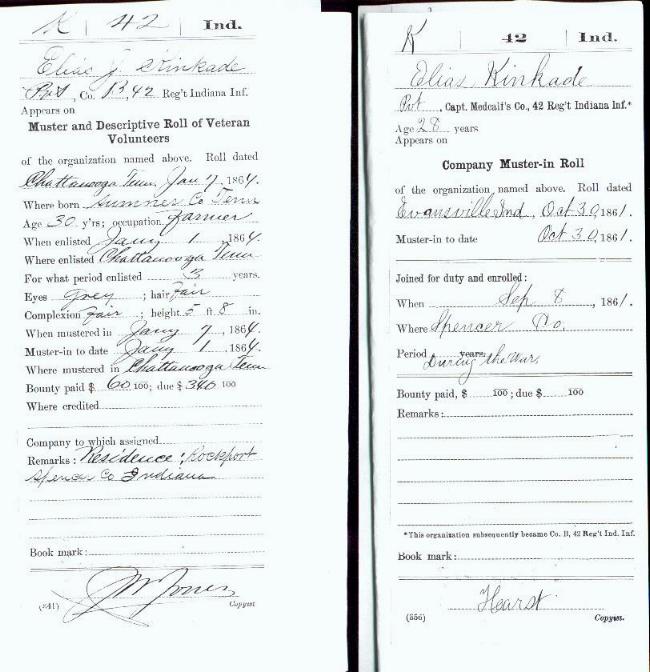 K | 42 | Ind.
Elias J Kinkade
Pvt, Co. B, 42 Reg't Indiana Inf.
Appears on
Muster and Descriptive Roll of Veteran
Volunteers
of the organization named above. Roll dated
Chattanooga Tenn Jan 7, 1864.
Where born Sumner Co Tenn
Age 30 y'rs; occupation farmer
When enlisted Jany 1, 1864.
Where enlisted Chattanooga Tenn
For what period enlisted 3 years.
Eyes Grey; hair Fair
Complexion Fair; height 5 ft 8 in.
When mustered in Jany 7, 1864.
Muster-in to date Jany 1, 1864.
Where mustered in Chattanooga Tenn
Bounty paid $ 60 100; due $ 340 100
Where credited
Company to which assigned
Remarks: Residence: Rockport
Spencer Co Indiana
Book mark:
J M Jones
(341) Copyist
K | 42 | Ind.
Elias Kinkade
Pvt, Capt. Medcalf's Co., 42 Reg't Indiana Inf.*
Age 28 years
Appears on
Company Muster-in Roll
of the organization named above. Roll dated
Evansville Ind, Oct 30, 1861.
Muster-in to date Oct 30, 1861.
Joined for duty and enrolled:
When Sep 8, 1861.
Where Spencer Co.
Period years.
During the war
Bounty paid, $ 100; due $ 100
Remarks:
*This organization subsequently became Co. B, 42 Reg't Ind. Inf.
Book mark:
Hearst
(356) Copyist.